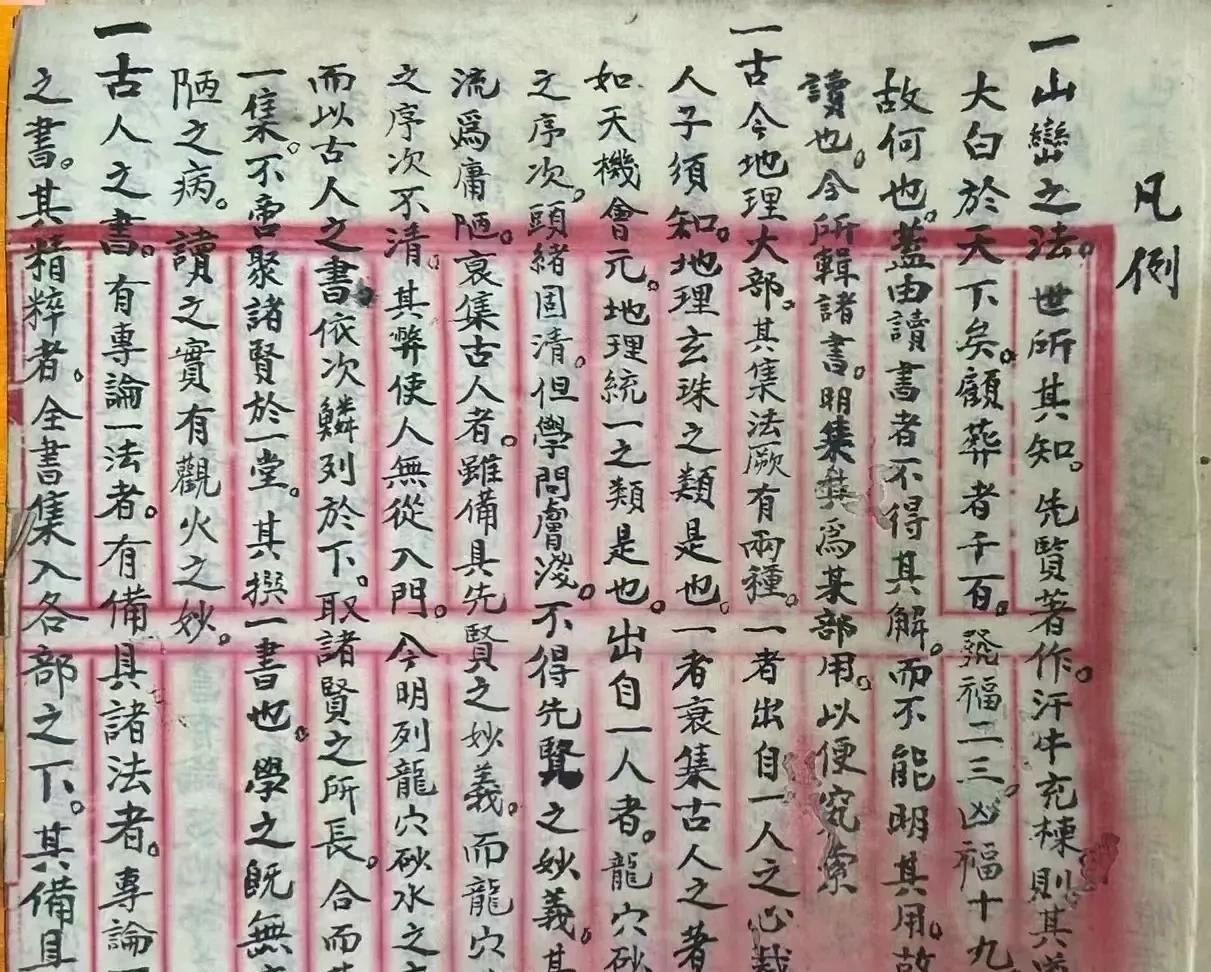 凡例
一山巒之法。世所其知。先賢著作。汗牛充棟則其
大白於天下矣。顧葬者千百。發福一三。凶福十九
故何也。蓋由讀書者不得其解。而不能明其用。故
讀也。今所輯諸書。明集某為某部用。以便究索
一古今地理大部。其集法厥有兩種。一者出自一人之心裁
人子須知。地理玄珠之類是也。一者裒集古人之著
如天機會元。地理統一之類是也。出自一人者。龍穴砂
之序次。頭緒固清。但學問膚淺。不得先賢之妙義。其
流為庸陋。裒集古人者。雖備具先賢之妙義。而龍穴
之序次不清。其弊使人無從入門。今明列龍穴砂水之
而以古人之書。依次鱗列於下。取諸賢之所長。合而
一集。不啻聚諸賢於一堂。其撰一書也。學之既無
陋之病。讀之實有觀火之妙。
一古人之書。有專論一法者。有備具諸法者。專論
之書。其精粹者。全書集入各部之下。其備具